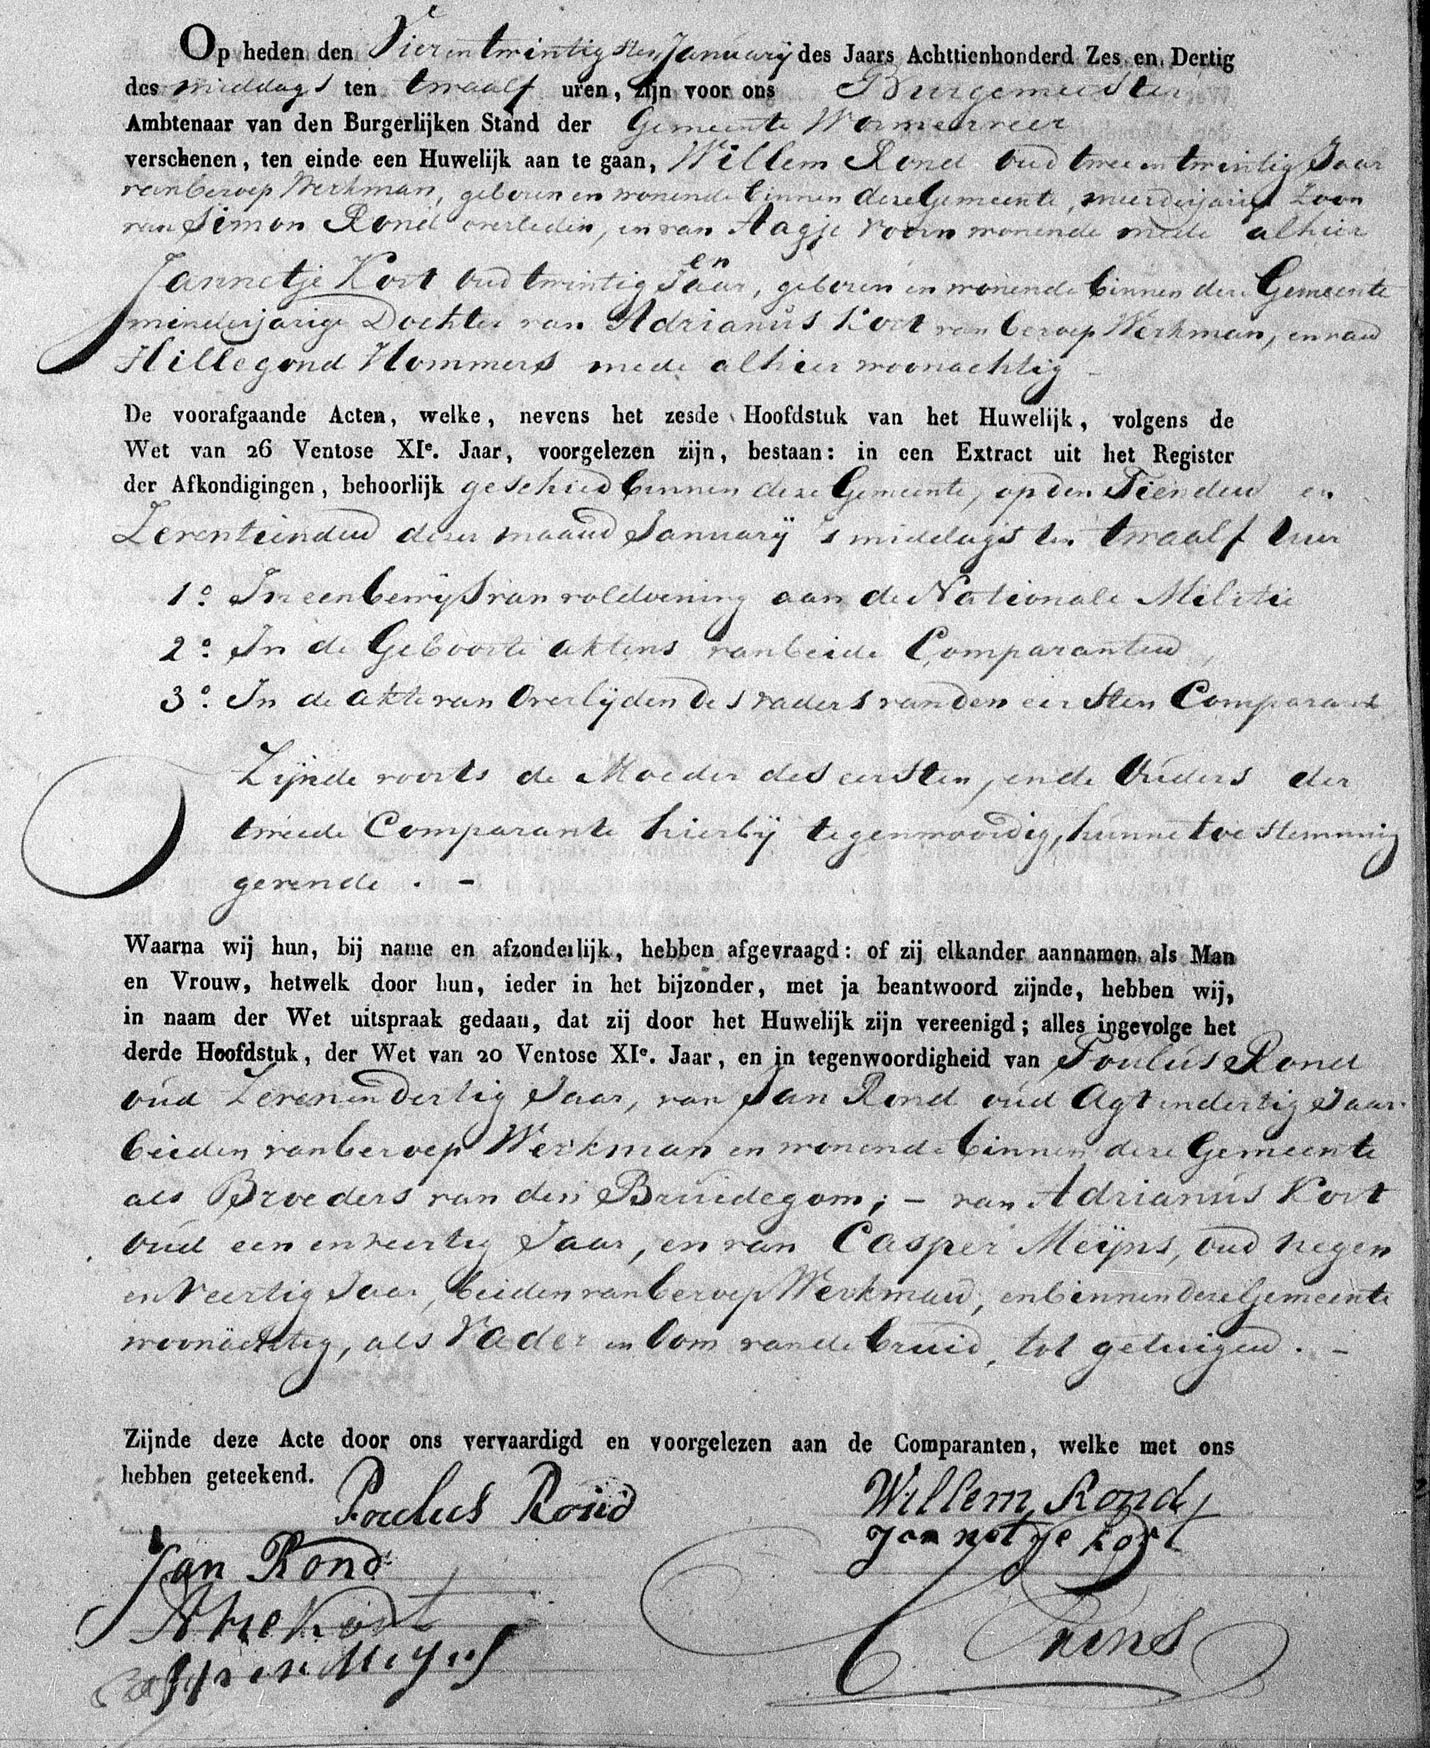 Op heden den Vier en twintigsten Januarÿ des Jaars Achttienhonderd Zes en Dertig
des middags ten twaalf uren, zijn voor ons Burgemeester
Ambtenaar van den Burgerlijken Stand der Gemeente Wormerveer
verschenen, ten einde een Huwelijk aan te gaan, Willem Rond oud twee en twintig Jaar
van beroep Werkman, geboren en wonende binnen deze Gemeente, meerderjarige Zoon
van Simon Rond overleden, en van Aagje Voorn wonende mede alhier
en
Jannetje Kort oud twintig Jaar, geboren en wonende binnen deze Gemeente
minderjarige Dochter van Adrianus Kort van beroep Werkman, en van
Hillegond Hommers mede alhier woonachtig -
De voorafgaande Acten, welke, nevens het zesde Hoofdstuk van het Huwelijk, volgens de
Wet van 26 Ventose XIe. Jaar, voorgelezen zijn, bestaan: in een Extract uit het Register
der Afkondigingen, behoorlijk geschied binnen deze Gemeente, op den Tienden en
Zeventienden dezer maand Januarÿ 's middags ten twaalf uur
1o. In een bewijs van voldoening aan de Nationale Militie
2o. In de Geboorte aktens van beide Comparanten,
3o. In de akte van Overlijden des vaders van den eersten Comparant
Zijnde voorts de Moeder des eersten, en de Ouders der
tweede Comparante hierbÿ tegenwoordig, hunne toestemming
gevende. -
Waarna wij hun, bij name en afzonderlijk, hebben afgevraagd: of zij elkander aannamen als Man
en Vrouw, hetwelk door hun, ieder in het bijzonder, met ja beantwoord zijnde, hebben wij,
in naam der Wet uitspraak gedaan, dat zij door het Huwelijk zijn vereenigd; alles ingevolge het
derde Hoofdstuk, der Wet van 20 Ventose XIe. Jaar, en in tegenwoordigheid van Poulus Rond
oud Zeven en Dertig Jaar, van Jan Rond oud Agt en dertig Jaar
beiden van beroep Werkman en wonende binnen deze Gemeente
als Broeders van den Bruidegom; - van Adrianus Kort
oud een en veertig Jaar, en van Casper Meijns, oud negen
en Veertig Jaar, beiden van beroep Werkman, en binnen deze Gemeente
woonachtig, als Vader en Oom van de bruid, tot getuigen. -
Zijnde deze Acte door ons vervaardigd en voorgelezen aan de Comparanten, welke met ons
hebben geteekend.
Poulus Rond
Willem Rond
Jannetje Kort
Jan Rond
Kort
Meyns